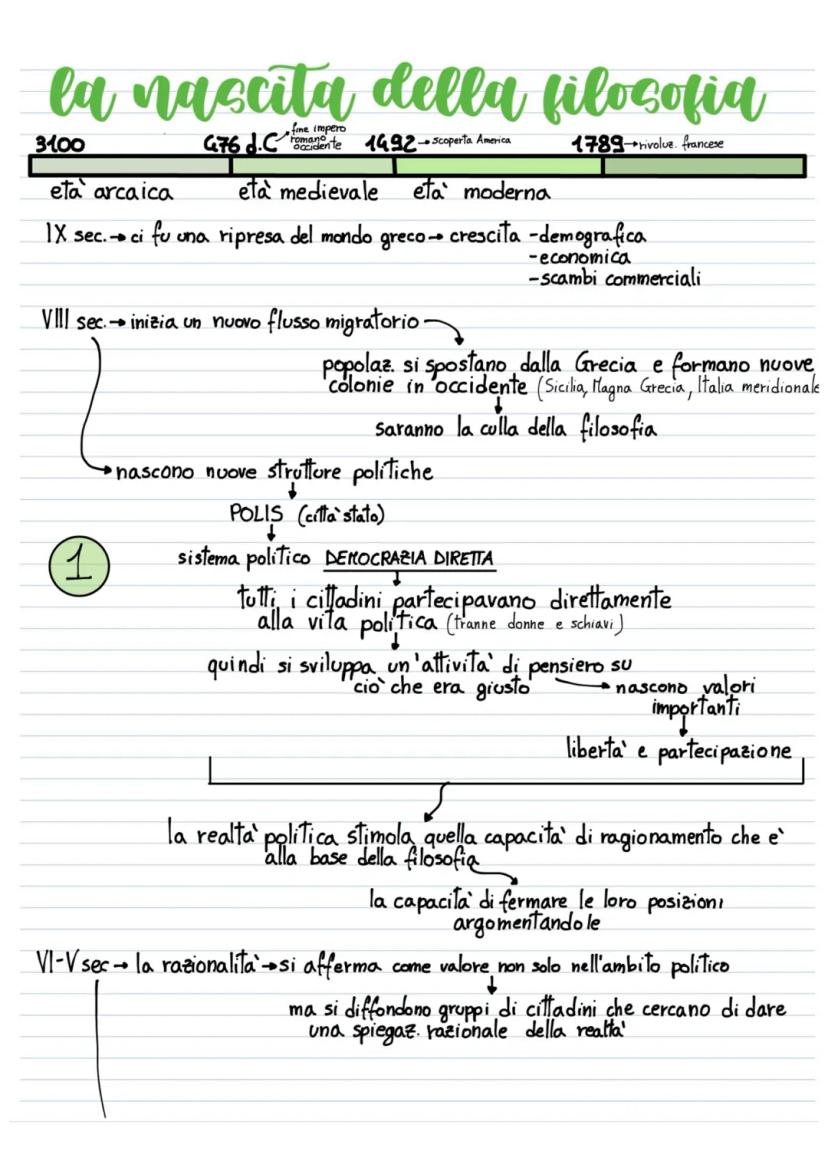 la nascita della filosofia
3100 476 d.C → fine impero romano occidente 1492 → scoperta America 1789 → rivoluz. francese
età arcaica età medievale età moderna
IX sec. → ci fu una ripresa del mondo greco → crescita -demografica
-economica
-scambi commerciali
VIII sec. → inizia un nuovo flusso migratorio
popolaz. si spostano dalla Grecia e formano nuove
colonie in occidente (Sicilia, Magna Grecia, Italia meridionale
saranno la culla della filosofia
→ nascono nuove strutture politiche
POLIS (città stato)
1
sistema politico DEMOCRAZIA DIRETTA
tutti i cittadini partecipavano direttamente
alla vita politica (tranne donne e schiavi)
quindi si sviluppa un'attività di pensiero su
ciò che era giusto → nascono valori
importanti
libertà e partecipazione
la realtà politica stimola quella capacità di ragionamento che è
alla base della filosofia
la capacità di fermare le loro posizioni
argomentandole
VI-V sec → la razionalità → si afferma come valore non solo nell'ambito politico
ma si diffondono gruppi di cittadini che cercano di dare
una spiegaz. razionale della realtà